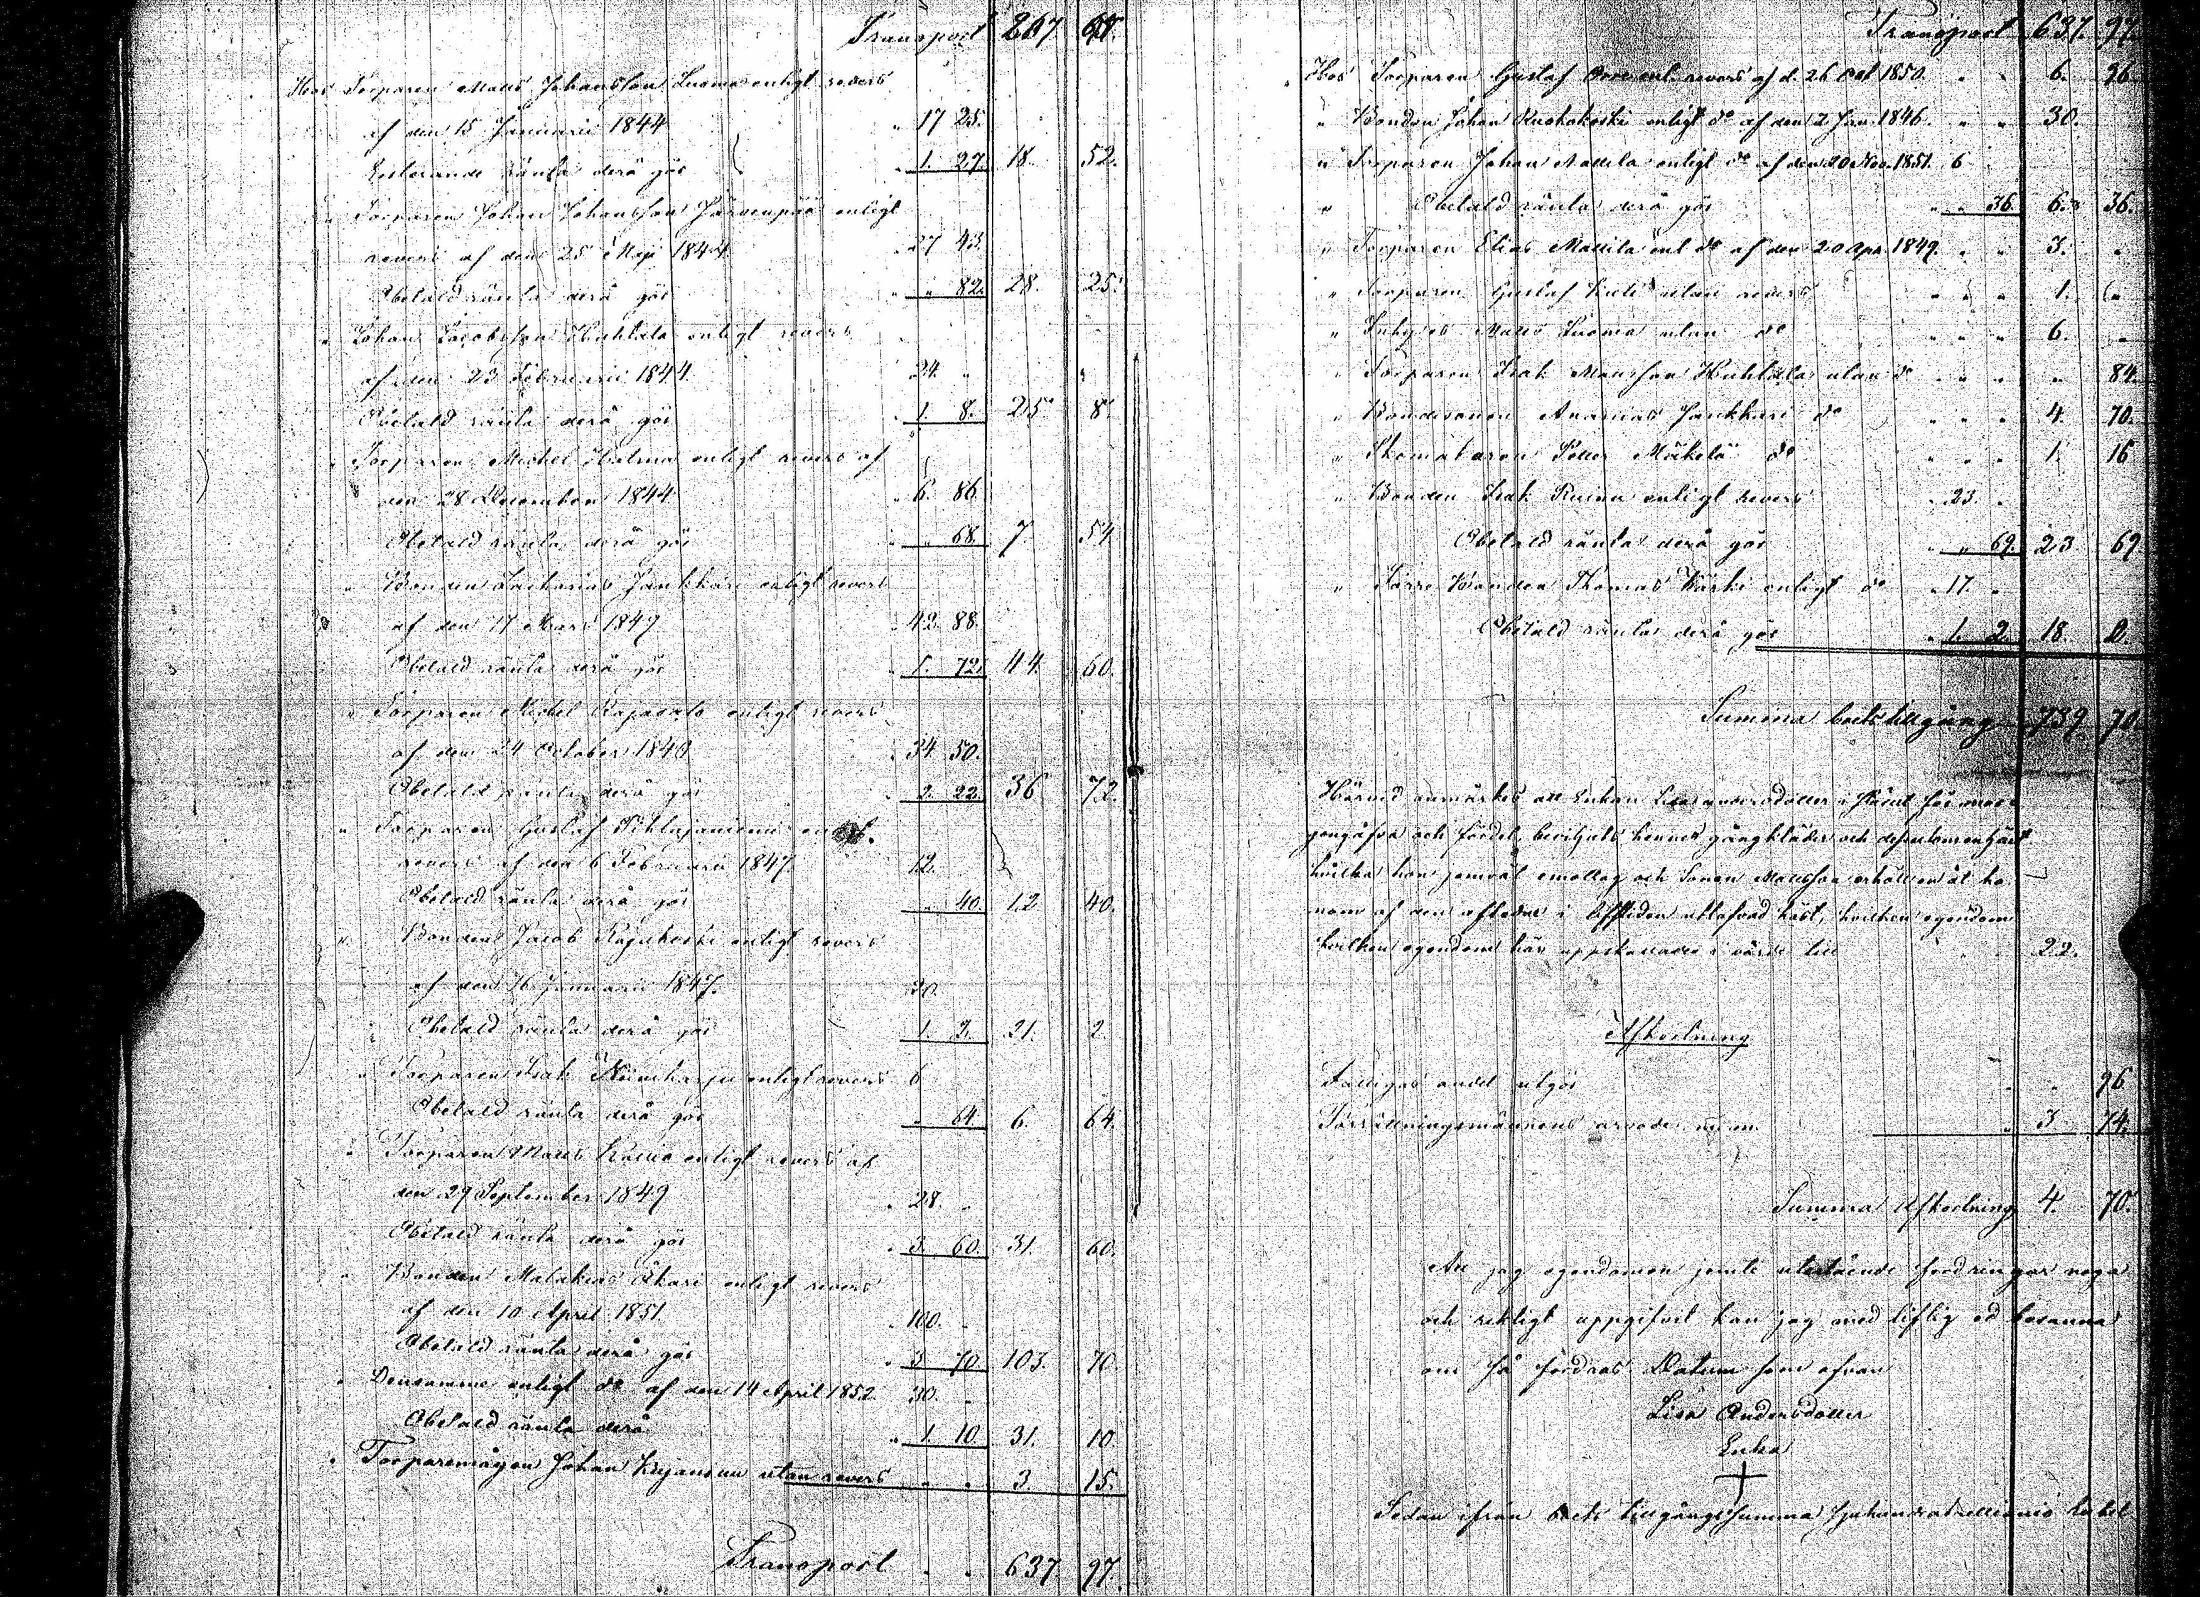 Transport 267 67.
Hos Torparen Matts Johansson Luoma enligt revers
af den 15 Januarii 1844 " 17 25.
Resterande ränta derå gör " 1. 27. 18. 52.
" Torparen Johan Johansson Järvenpää enligt
revers af den 25 Maji 1844. " 27 43.
Obetald ränta derå gör " " 82. 28. 25.
" Johan Jacobsson Huhtala enligt revers
af den 23 Februarii 1844. 24. "
Obetald ränta derå gör " 1. 8. 25 8.
" Torparen Michel Halma enligt revers af
den 28 December 1844 " 6. 86.
Obetald ränta derå gör " 68. 7. 54
" Bonden Zacharias Jankkari enligt revers
af den 17 Mars 1849 " 42. 88.
Obetald ränta derå gör " 1. 72. 44. 60.
" Torparen Michel enligt revers
af den 24 October 1840 " 34 50.
Obetald ränta derå gör " 2. 22. 36 72.
" Torparen Gustaf Pihlajaniemi
revers af den 6 Februarii 1847. 12.
Obetald ränta derå gör " 40. 12 40.
" Bonden Jacob enligt revers
af den 16 Januarii 1847. 20.
Obetald ränta derå gör 1. 2. 21. 2.
" Torparen Isak enligt revers 6
Obetald ränta derå gör " 64. 6. 64.
" Torparen Matts enligt revers af
den 29 September 1849 " 28. "
Obetald ränta derå gör " 3. 60. 31. 60.
" Bonden Malakias enligt revers
af den 10 April 1851. " 100. "
Obetald ränta derå gör " 3 70. 103. 70.
" Densamme enligt do af den 14 April 1852 30. "
Obetald ränta derå " 1. 10 31. 10.
" Torparemågen Johan utan revers " " 3 15.
Transport " " 637. 97.
Transport 637. 97.
Hos Torparen Gustaf enl. revers af d. 26 Oct 1850. " " 6. 36
" Bonden Johan enligt do af den 2 Jan. 1846. " " 30.
" Torparen Johan Mattila enligt do af den 20 Nov. 1851. 6
" Obetald ränta derå gör " " 36. 6. 36.
" Torparen Elias Mattila enl do af den 20 Apr. 1849. " " 3. "
" Torparen Gustaf utan revers " " " 1. "
" Matts Luoma utan do " " " 6. "
" Torparen Isak Mansson Huhtala utan do " " " " 84.
" Bondesonen Ananias Jankkari do " " " 4. 70.
" Skomakaren Petter Mäkelä do " " " 1. 16
" Bonden Isak enligt revers " 23. "
Obetald ränta derå gör " " 69. 23 69
" Bonden Thomas enligt do " 17. "
Obetald ränta derå gör " 1. 2. 18. 2.
Summa boets tillgång 739. 70.
Härvid anmärkes att Enkan Lisa Andersdotter i stället för mor
gongåfva och fördel, beviljats hennes gångkläder och
hvilka hon jemväl emottog och Sonen Mattsson erhållen åt ho
nom af den aflidne i lifstiden utlofvad häst, hvilken egendom
hvilken egendom här uppskattades i värde till " " 22.
Afkortning
Fattigas andel utgör " " 96
Förrättningsmännens arvode m.m. " 3 74.
Summa Afkortning 4. 70.
Att jag egendomen jemte utestående fordringar noga
och riktigt uppgifvit kan jag med liflig ed besanna
om så fordras. Datum som ofvan
Lisa Andersdotter
Enka
Sedan ifrån boets tillgångs summa